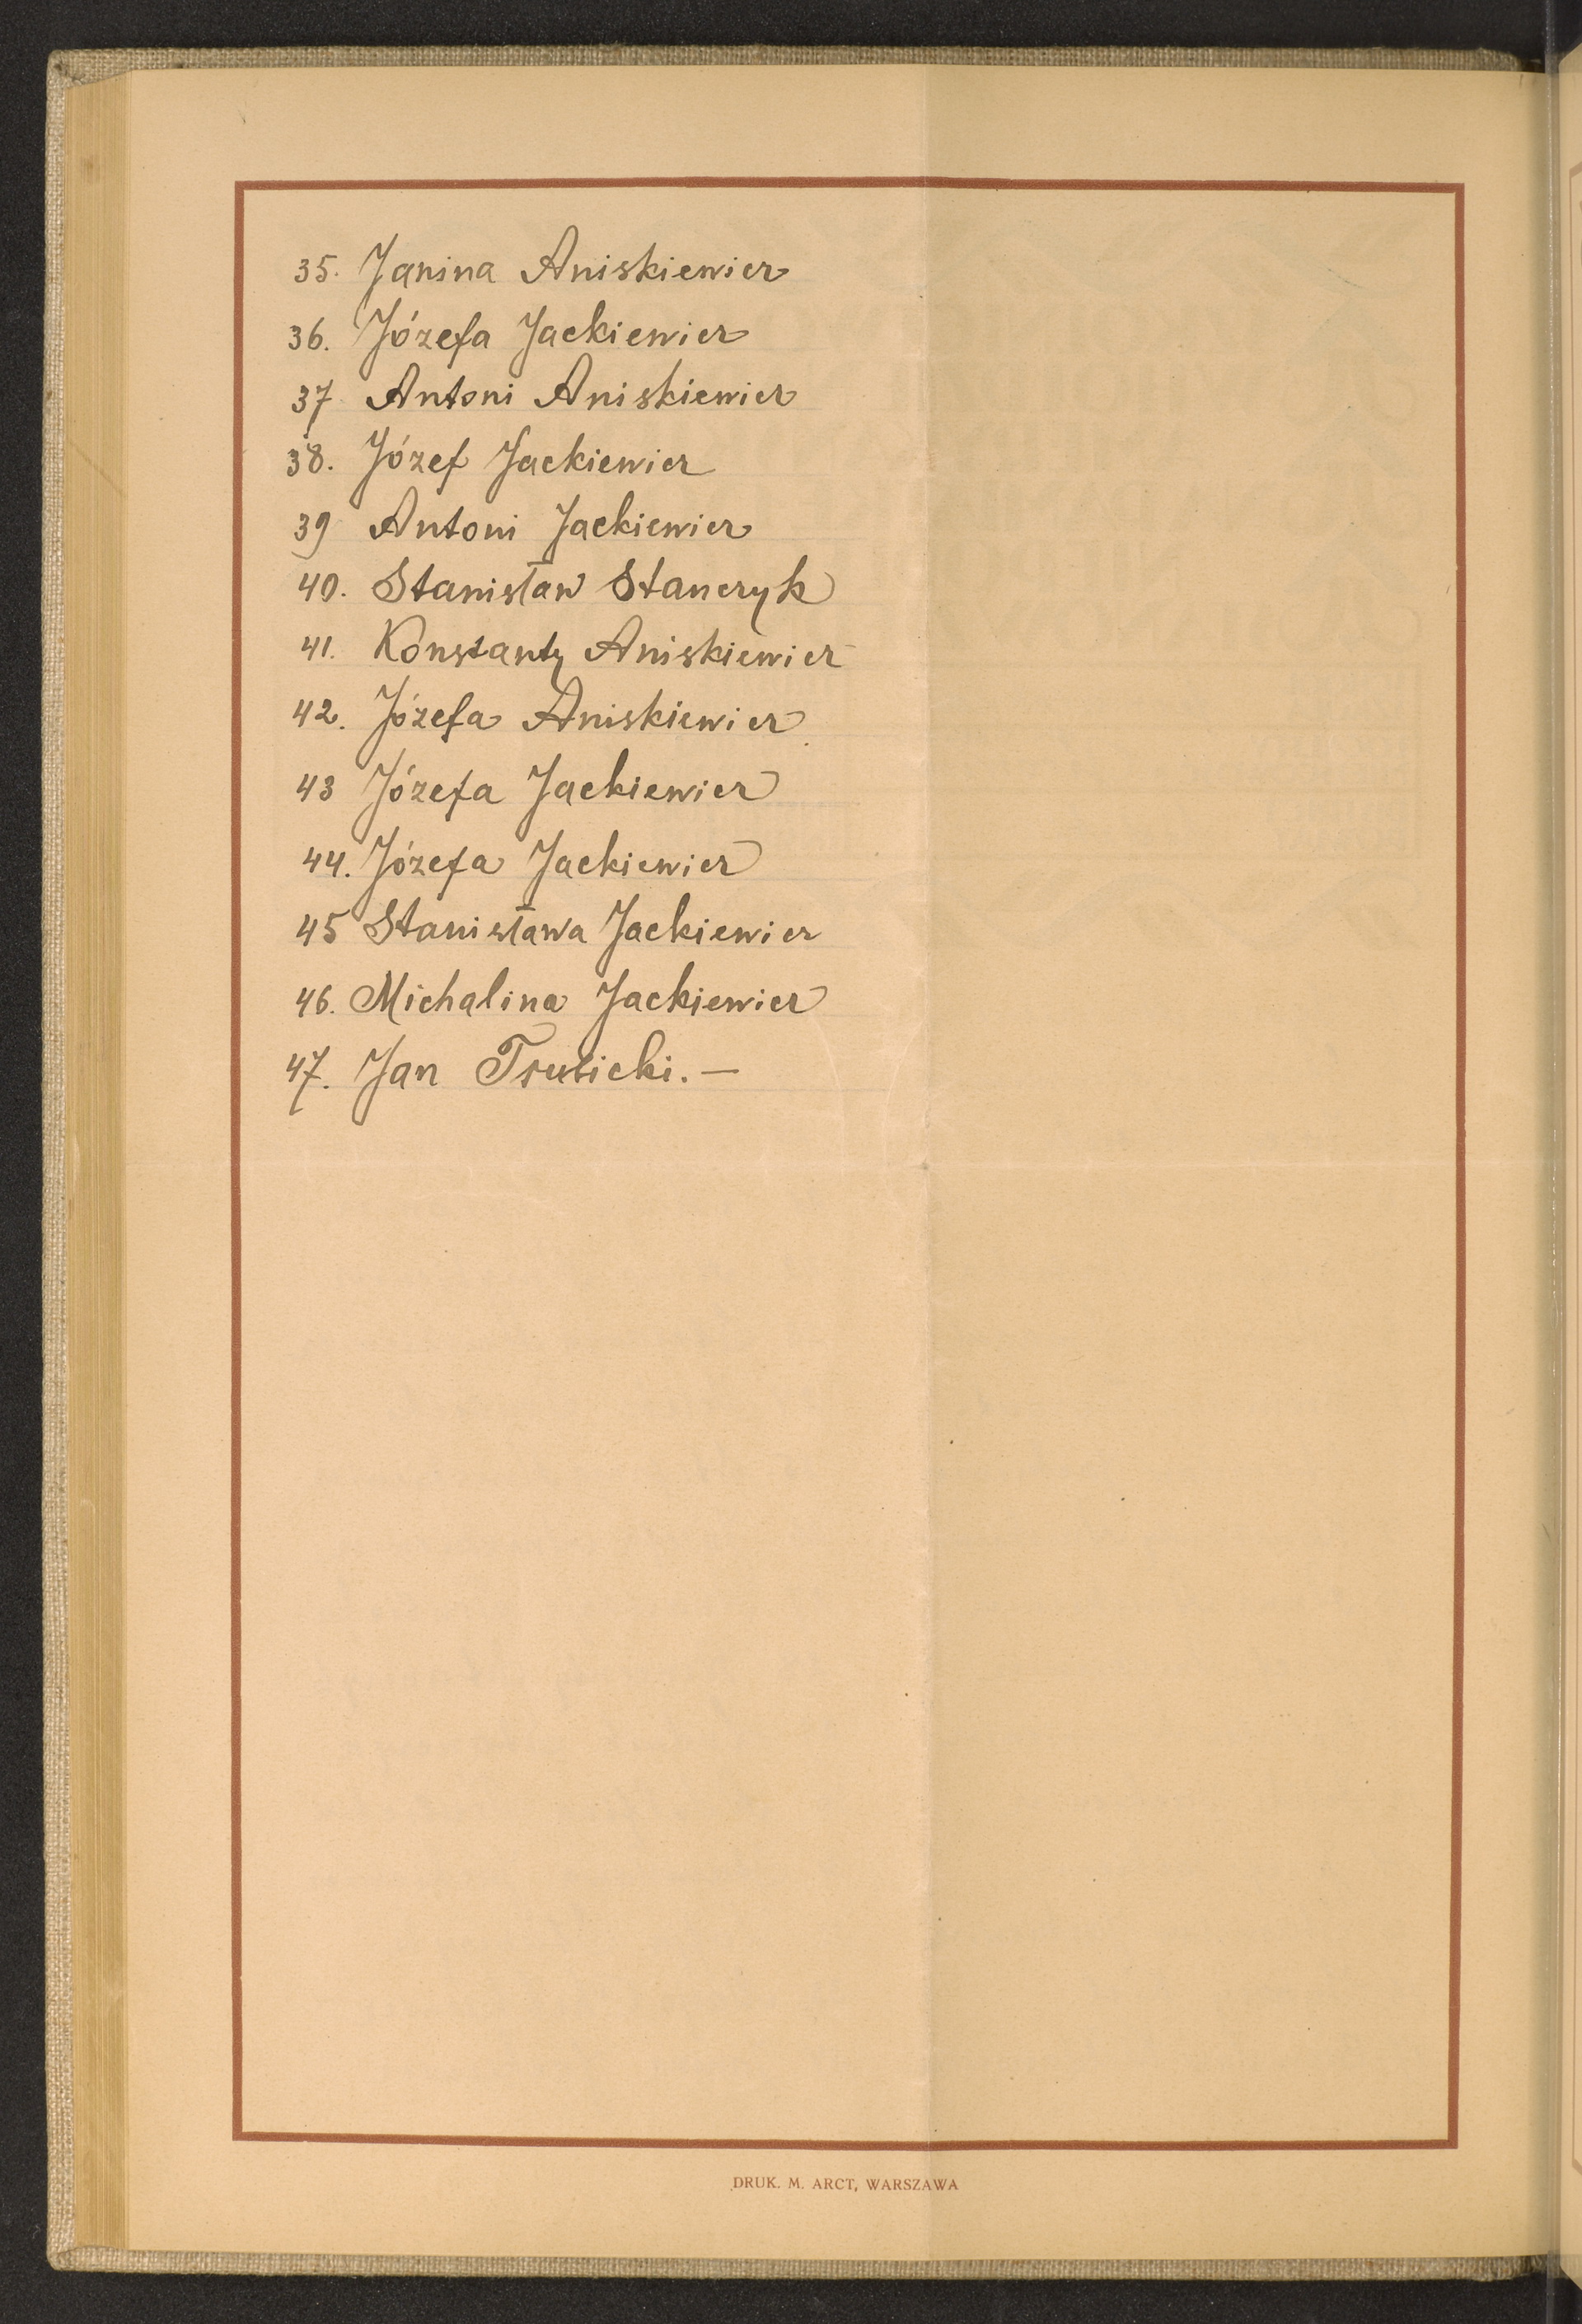 35. Janina Aniskiewicz
36. Józefa Jackiewicz
37 Antoni Aniskiewicz
38. Józef Jackiewicz
39 Antoni Jackiewicz
40. Stanisław Stanczyk
41. Konstanty Aniskiewicz
42. Józefa Aniskiewicz
43 Józefa Jackiewicz
44. Józefa Jackiewicz
45 Stanisława Jackiewicz
46. Michalina Jackiewicz
47. Jan
DRUK. M. ARCT, WARSZAWA